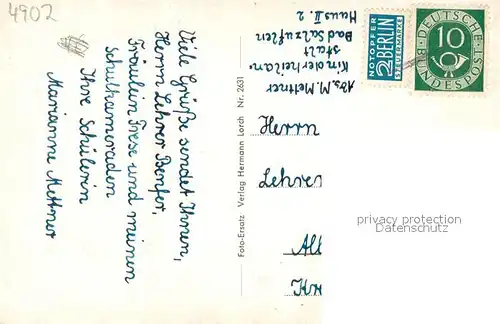 4902
Viele Grüße sendet Ihnen,
Herrn Lehrer Benfer,
Fräulein Frese und meinen
Schulkameraden
Ihre Schülerin
Marianne Mettner
Foto-Ersatz Verlag Hermann Lorch Nr. 2631
Abs. M. Mettner
Kinderheilan-
stalt
Bad Salzuflen
Haus II. 2
NOTOPFER
2 BERLIN
STEUERMARKE
DEUTSCHE
BUNDESPOST
10
Herrn
Lehrer
privacy protection
Datenschutz